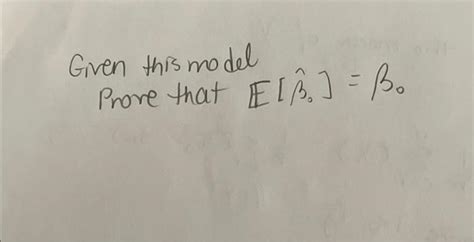 Given this model
Prove that 𝔼[β̂₀] = β₀